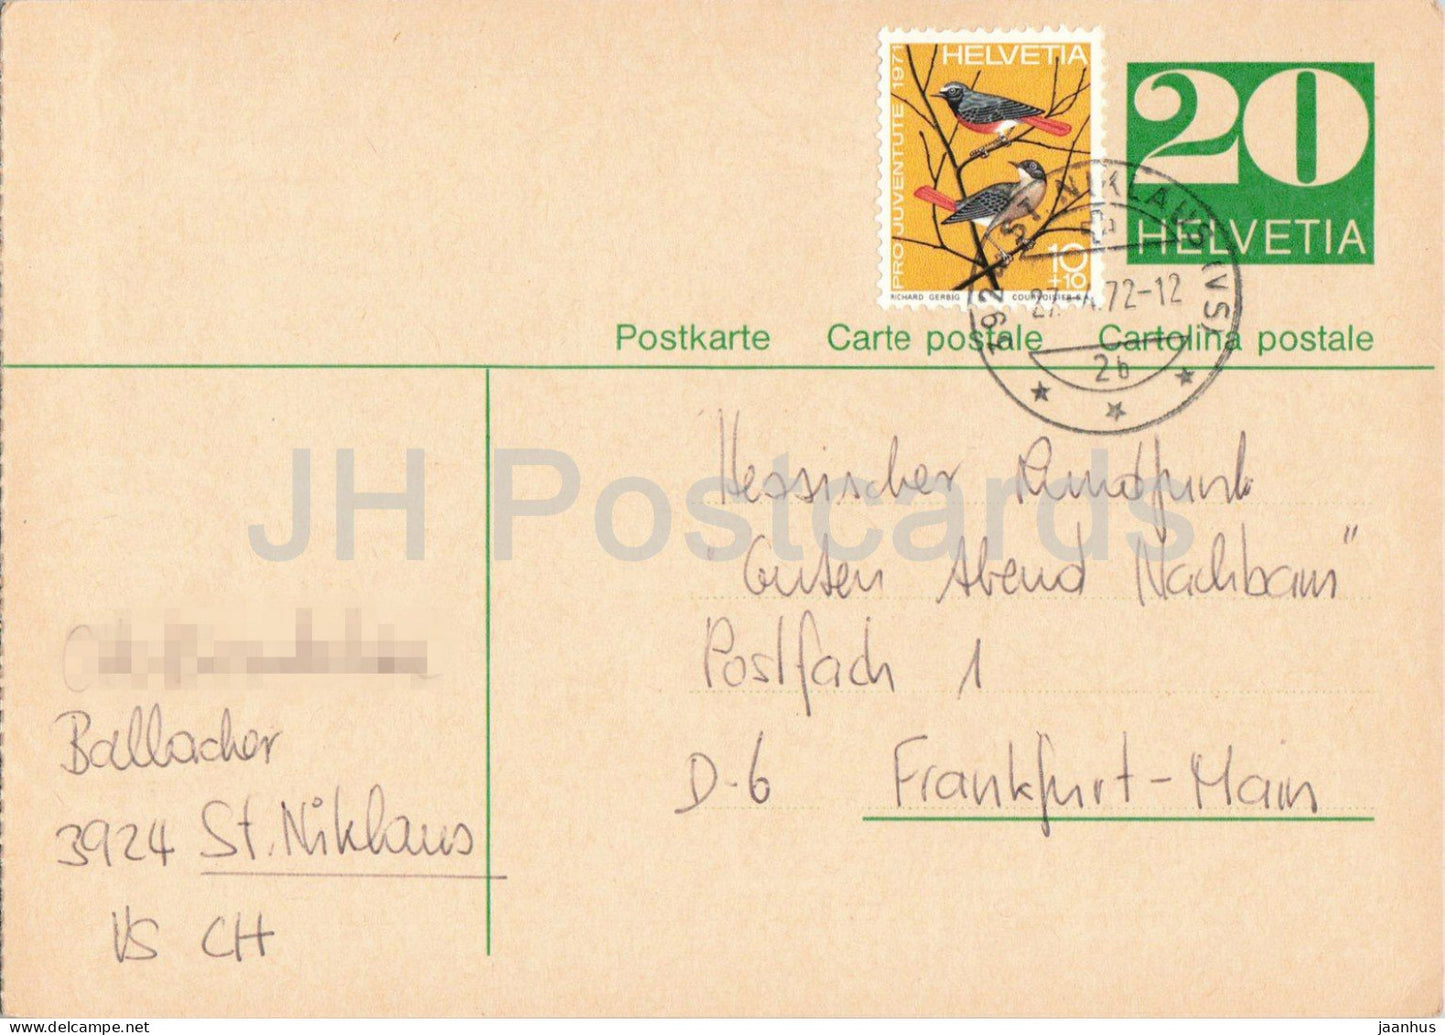 HELVETIA
PRO JUVENTUTE 1971
10
+10
RICHARD GERBIG COURVOISIER S.A.
20
HELVETIA
3924 ST. NIKLAUS (VS)
72-12
2b
Postkarte Carte postale Cartolina postale
JH Postcards
Hessischer Rundfunk
"Guten Abend Nachbarn"
Postfach 1
D-6 Frankfurt-Main
Ballacher
3924 St. Niklaus
VS CH
www.delcampe.net
jaanhus